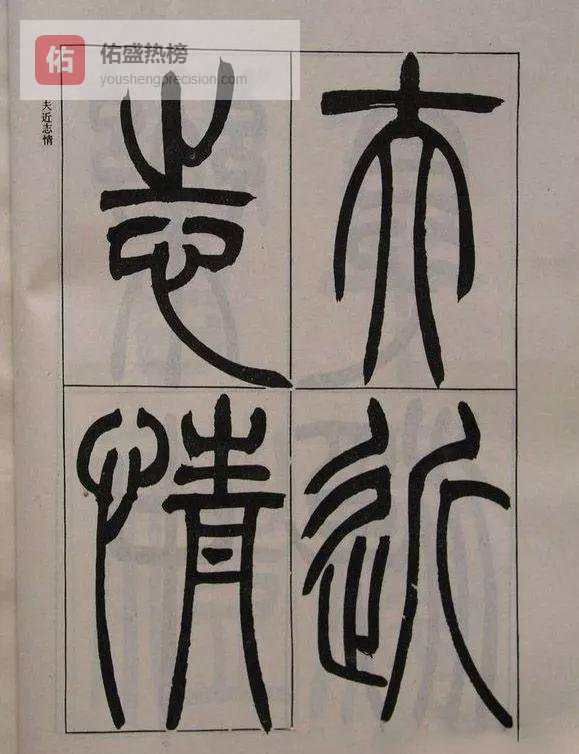 佑
佑盛热榜
youshengprecision.com
夫近志情
夫近
志情